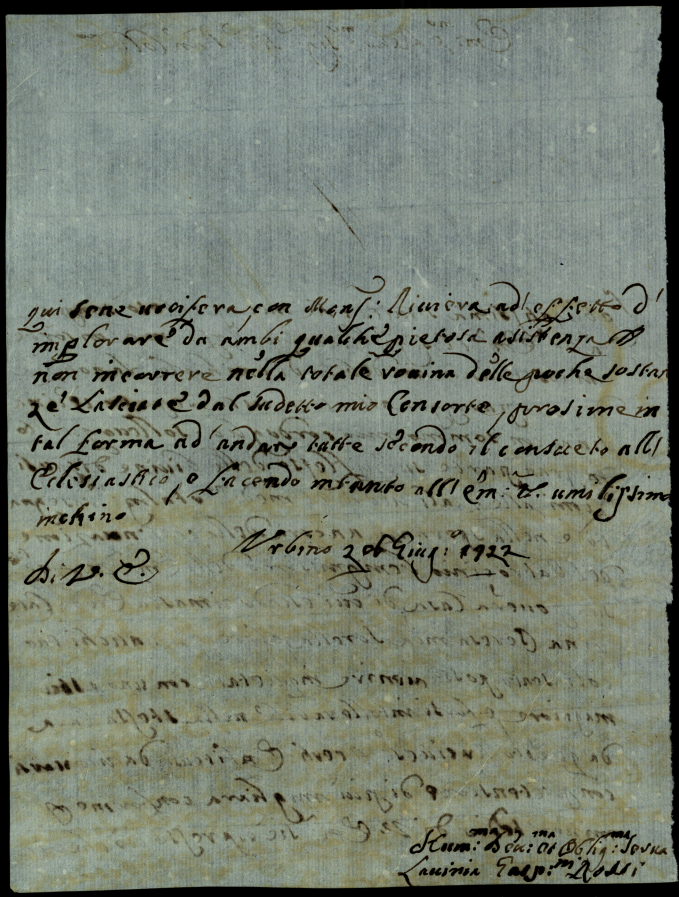 qui sene uroisera, con Mons.: Riviera, ad' effetto d'
implorare da ambi qualche pietosa asistenza p
non incorrere nella totale rovina delle poche sostan
ze Lasciate dal sudetto mio Consorte, prosime in
tal forma ad' andare tutte secondo il consueto all'
Eclesiastico, e facendo intanto all' Em.ª V. umilissimo
inchino
Urbino 2 Giug.º 1722
Di V. E.
Hum.ma Dev.ma et Oblig.ma Serva
Lavinia Gasp.m Rossi